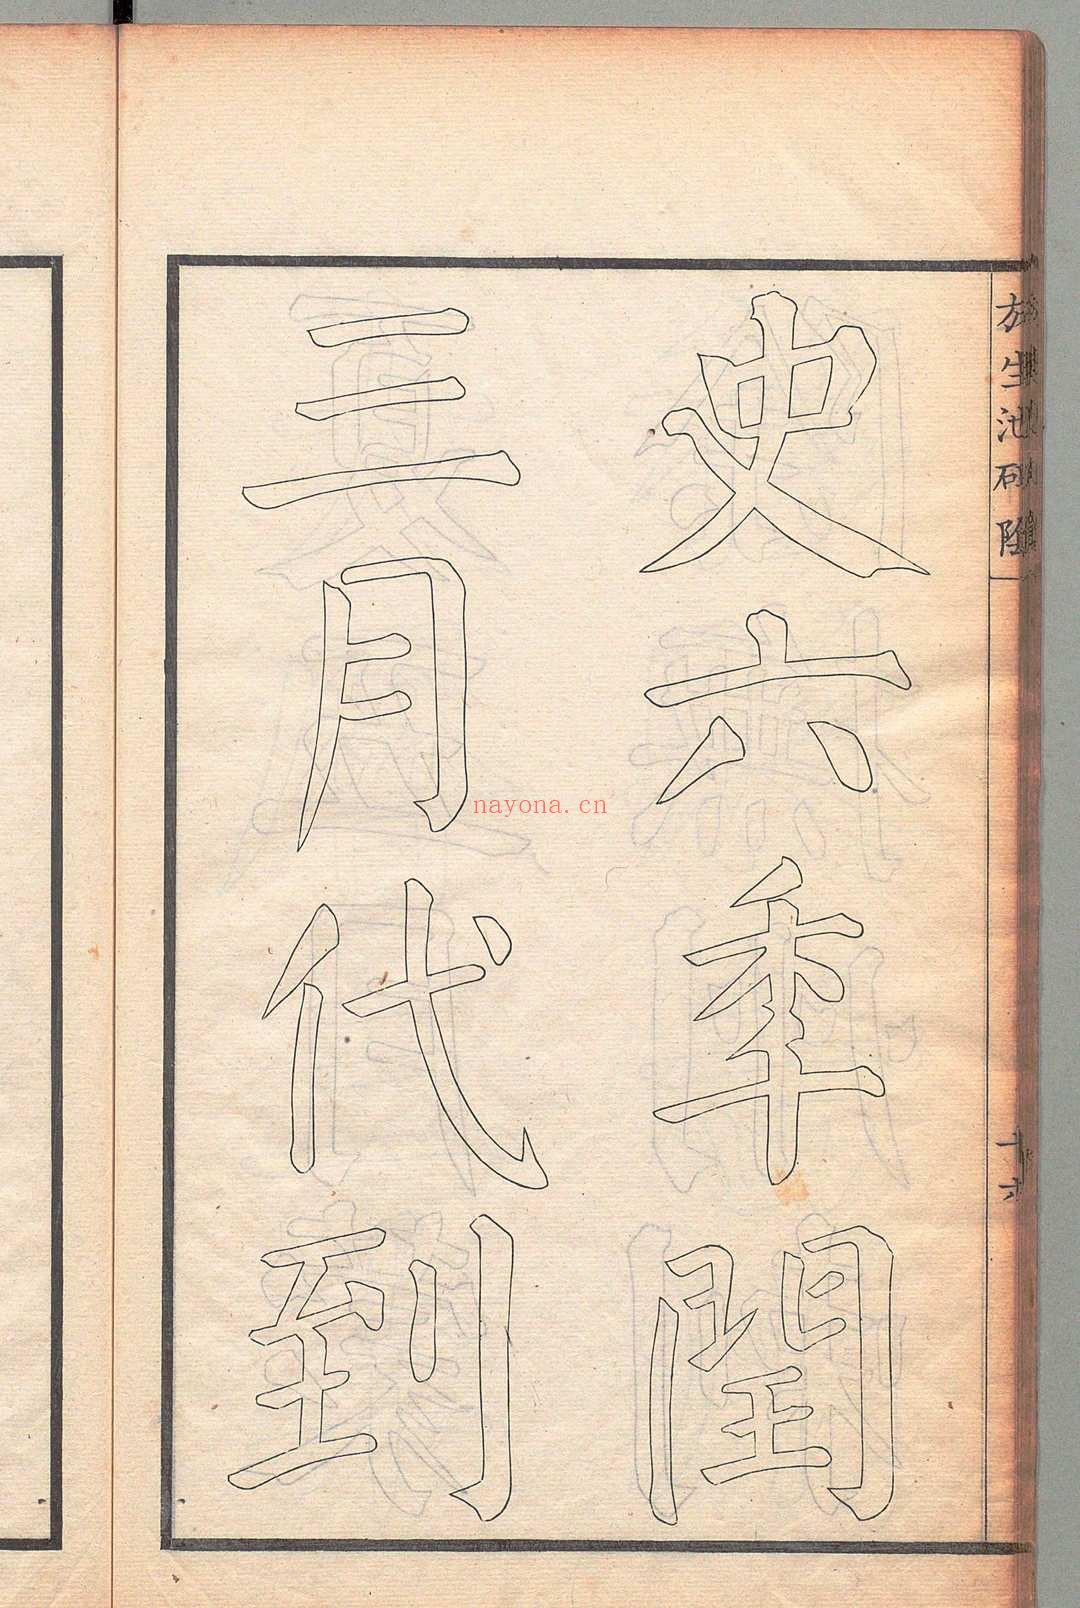 放生池碑陰
十六
史六年閏
三月代到
nayona.cn